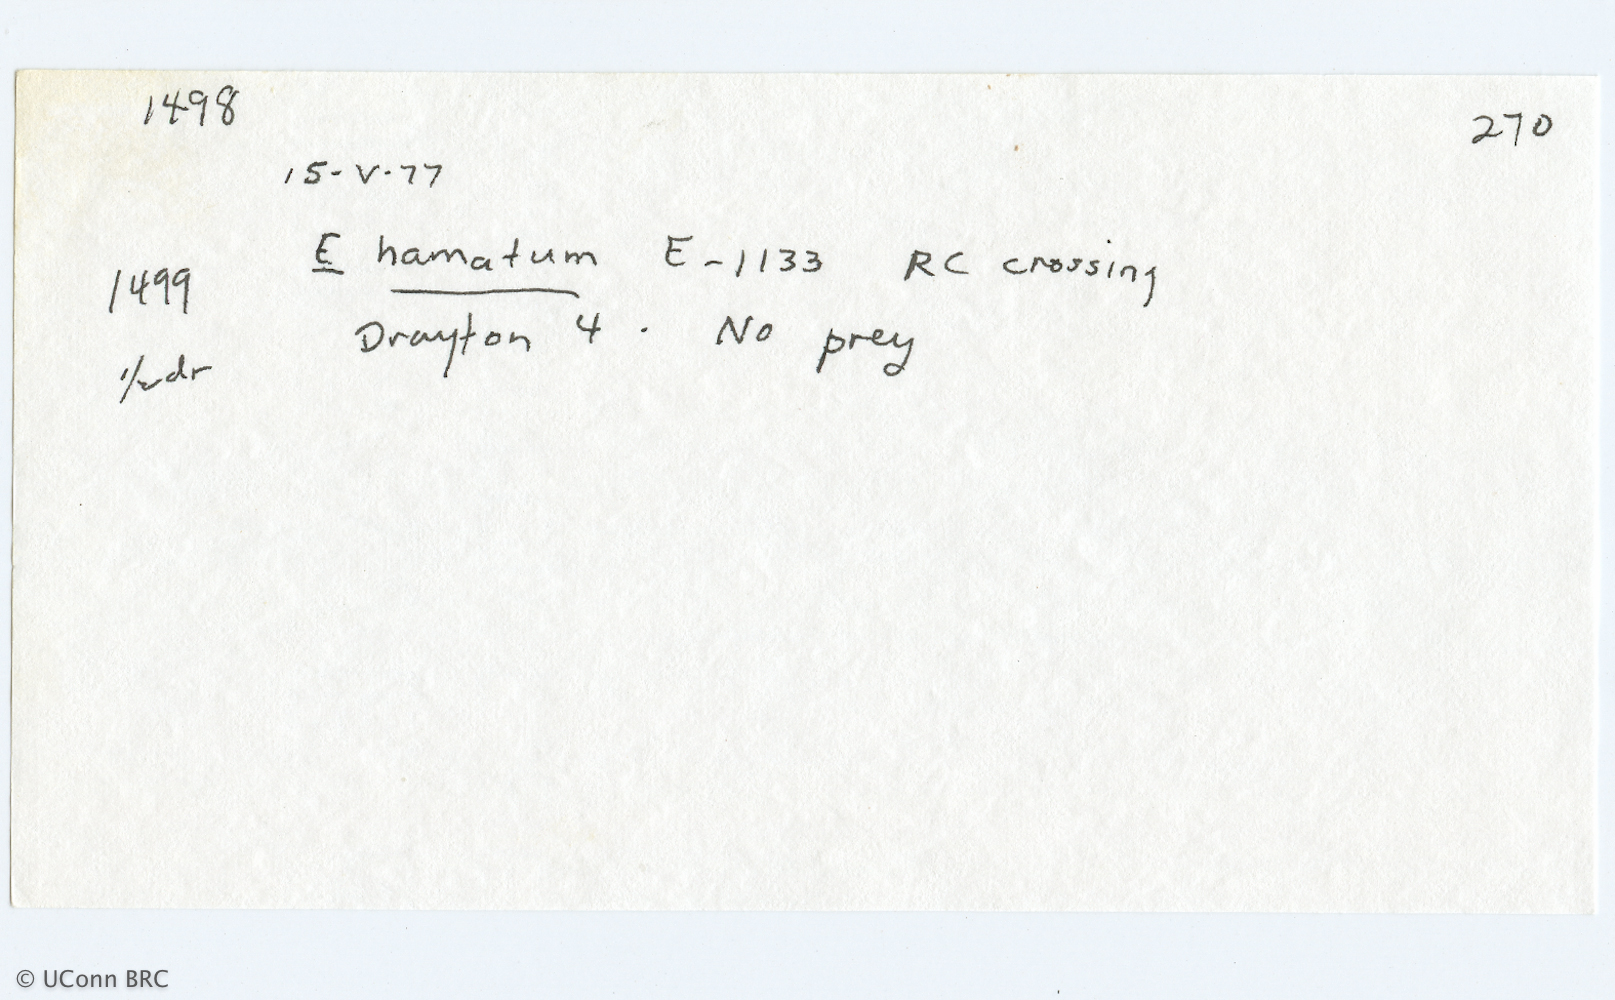 1498
270
15-V-77
E hamatum E-1133 RC crossing
1499
Drayton 4. No prey
1/2 dr
© UConn BRC